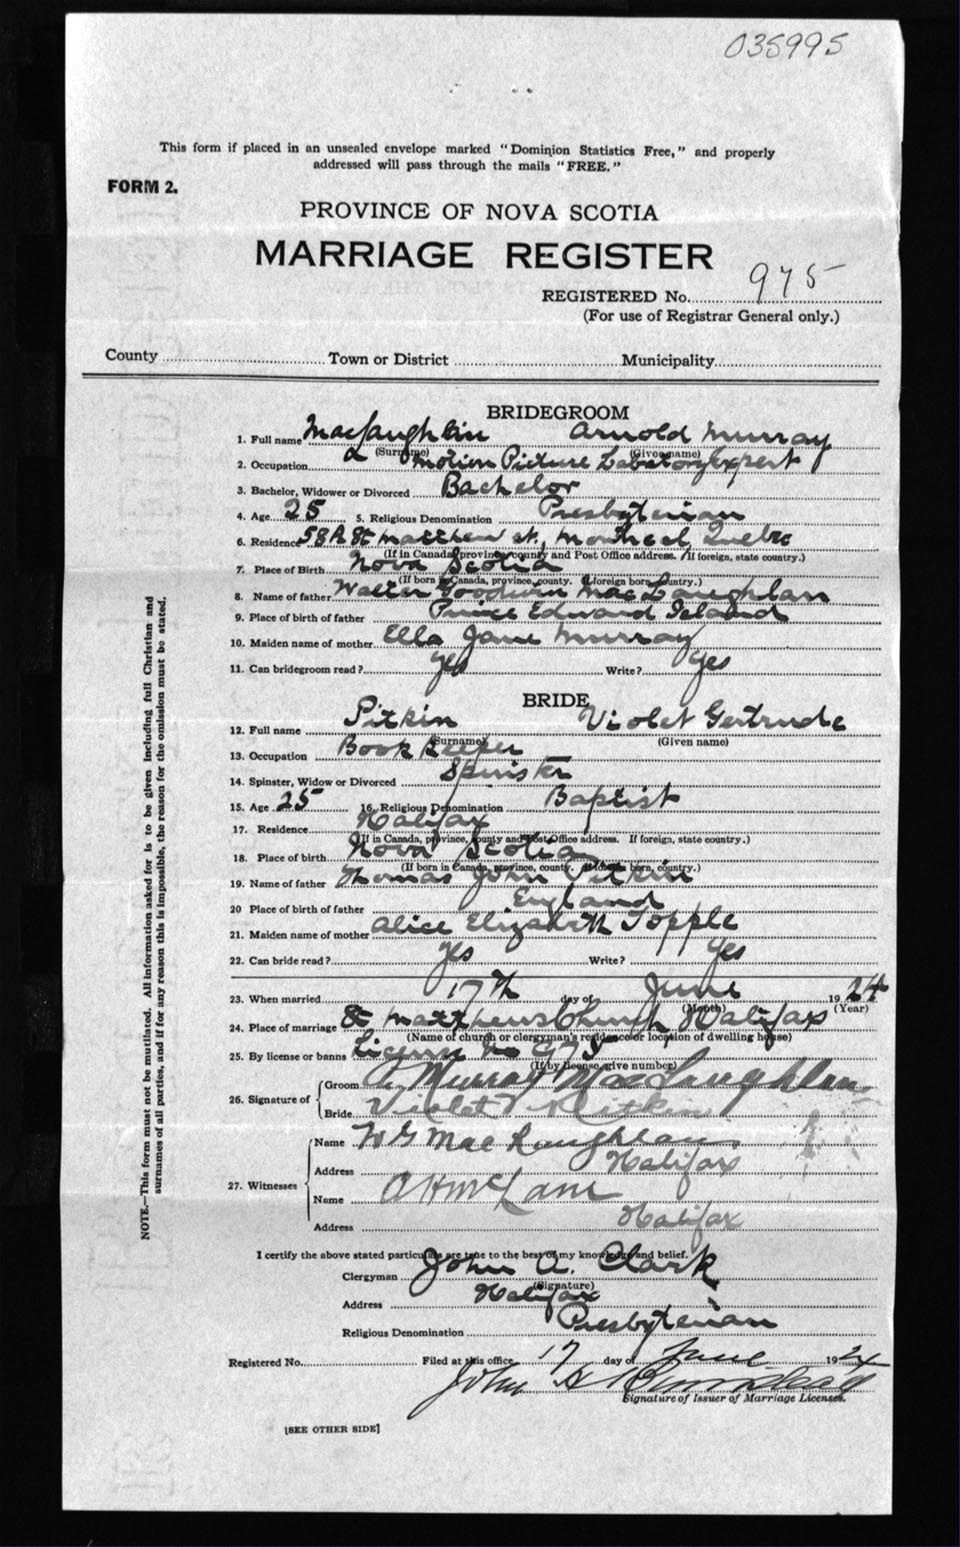 035995
This form if placed in an unsealed envelope marked "Dominion Statistics Free," and properly
addressed will pass through the mails "FREE."
FORM 2.
PROVINCE OF NOVA SCOTIA
MARRIAGE REGISTER
REGISTERED No. 975
(For use of Registrar General only.)
County Town or District Municipality
BRIDEGROOM
1. Full name MacLaughlin Arnold Murray
(Surname) (Given name)
2. Occupation a Motion Picture Labatory Expert
3. Bachelor, Widower or Divorced Bachelor
4. Age 25 5. Religious Denomination Presbyterian
6. Residence 58A St Matthew st., Montreal, Quebec
(If in Canada, province, county and Post Office address. If foreign, state country.)
7. Place of Birth Nova Scotia
(If born in Canada, province, county. If foreign born, country.)
8. Name of father Walter Goodwin MacLaughlan
9. Place of birth of father Prince Edward Island
10. Maiden name of mother Ella Jane Murray
11. Can bridegroom read? Yes Write? Yes
BRIDE
12. Full name Pitkin Violet Gertrude
(Surname) (Given name)
13. Occupation Book Keeper
14. Spinster, Widow or Divorced Spinster
15. Age 25 16. Religious Denomination Baptist
17. Residence Halifax
(If in Canada, province, county and Post Office address. If foreign, state country.)
18. Place of birth Nova Scotia
(If born in Canada, province, county. If foreign born, country.)
19. Name of father Thomas John Pitkin
20 Place of birth of father England
21. Maiden name of mother Alice Elizabeth Topple
22. Can bride read? Yes Write? Yes
23. When married 17th day of June 1924
(Month) (Year)
24. Place of marriage St Matthews Church Halifax
(Name of church or clergyman's residence or location of dwelling house)
25. By license or banns License No 975
(If by license, give number)
26. Signature of Groom A Murray MacLaughlan
Bride Violet Pitkin
27. Witnesses Name W G MacLaughlan
Address Halifax
Name A H McLane
Address Halifax
I certify the above stated particulars are true to the best of my knowledge and belief.
Clergyman John A. Clark
(Signature)
Address Halifax
Religious Denomination Presbyterian
Registered No. Filed at this office 17 day of June 1924
John A
Signature of Issuer of Marriage Licenses.
[SEE OTHER SIDE]
NOTE.—This form must not be mutilated. All information asked for is to be given including full Christian and
surnames of all parties, and if for any reason this is impossible, the reason for the omission must be stated.